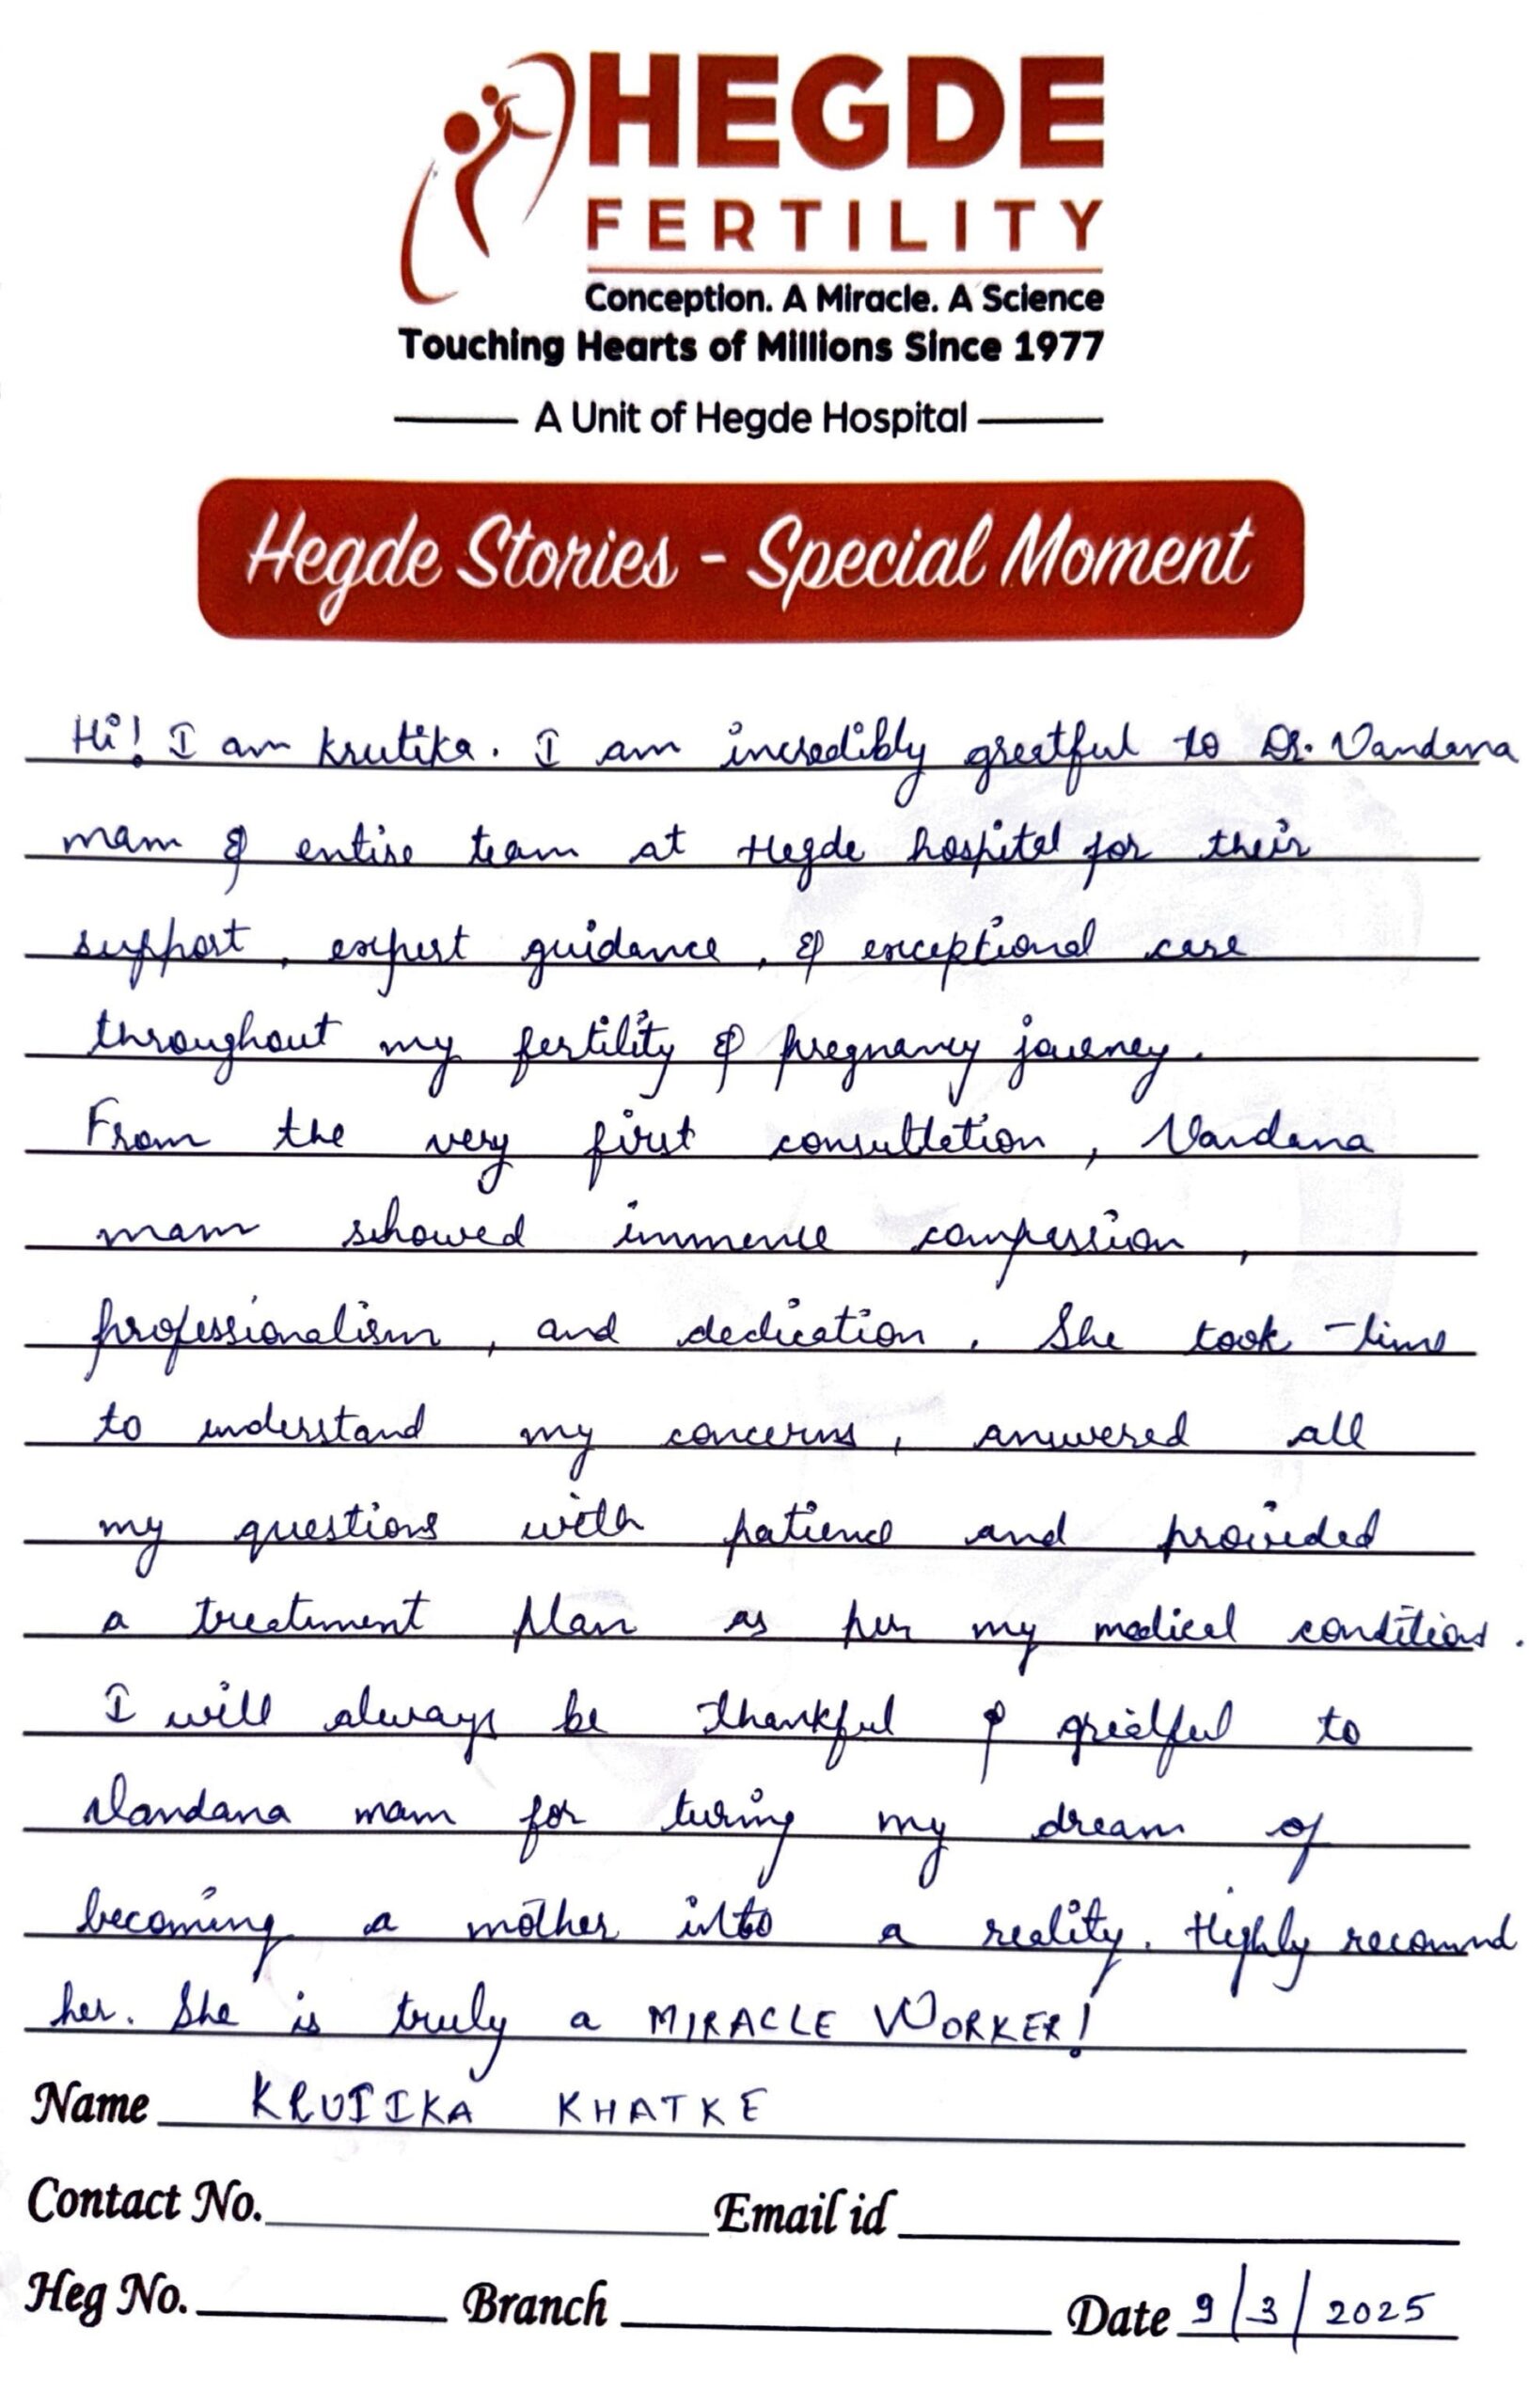 HEGDE
FERTILITY
Conception. A Miracle. A Science
Touching Hearts of Millions Since 1977
A Unit of Hegde Hospital
Hegde Stories - Special Moment
Hi! I am Krutika. I am incredibly greatful to Dr. Vandana
mam & entire team at Hegde hospital for their
support, expert guidance, & exceptional care
throughout my fertility & pregnancy journey.
From the very first consultation, Vandana
mam showed immence compassion,
professionalism, and dedication. She took time
to understand my concerns, answered all
my questions with patience and provided
a treatment plan as per my medical conditions.
I will always be thankful & greatful to
Vandana mam for turing my dream of
becoming a mother into a reality. Highly recomnd
her. She is truly a MIRACLE WORKER!
Name KRUTIKA KHATKE
Contact No. Email id
Heg No. Branch Date 9/3/2025